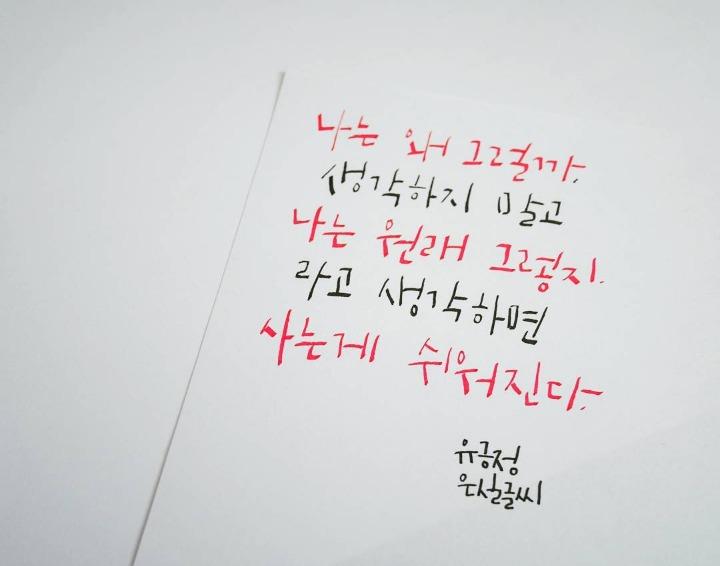 나는 왜 그럴까.
생각하지 말고
나는 원래 그렇지.
라고 생각하면
사는게 쉬워진다.
유긍정
은설글씨